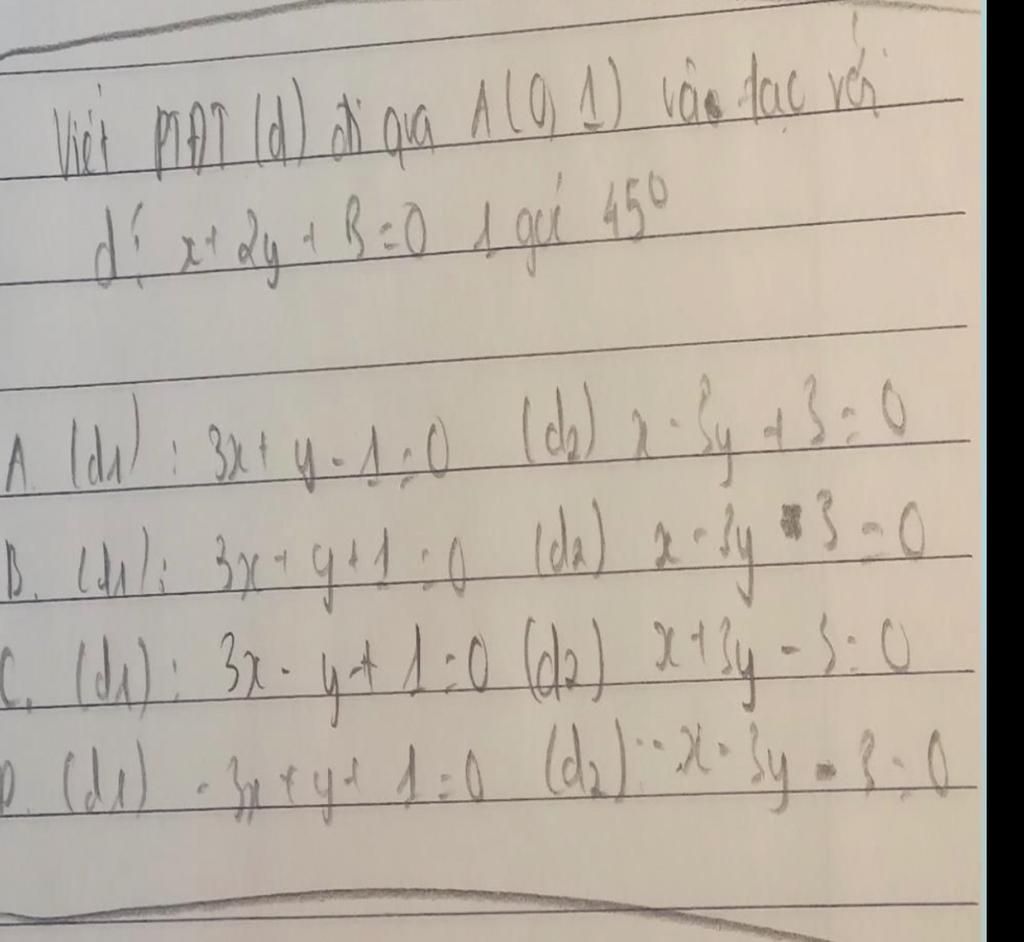 Viết PTĐT (d) đi qua A(0,1) và tạc với
d': x+2y+3=0 1 gói 45⁰
A. (d1): 3x+y-1=0 (d2) x-3y+3=0
B. (d1): 3x+y+1=0 (d2) x-3y-3=0
C. (d1): 3x-y+1=0 (d2) x+3y-3=0
D. (d1) -3x+y+1=0 (d2) -x-3y-3=0